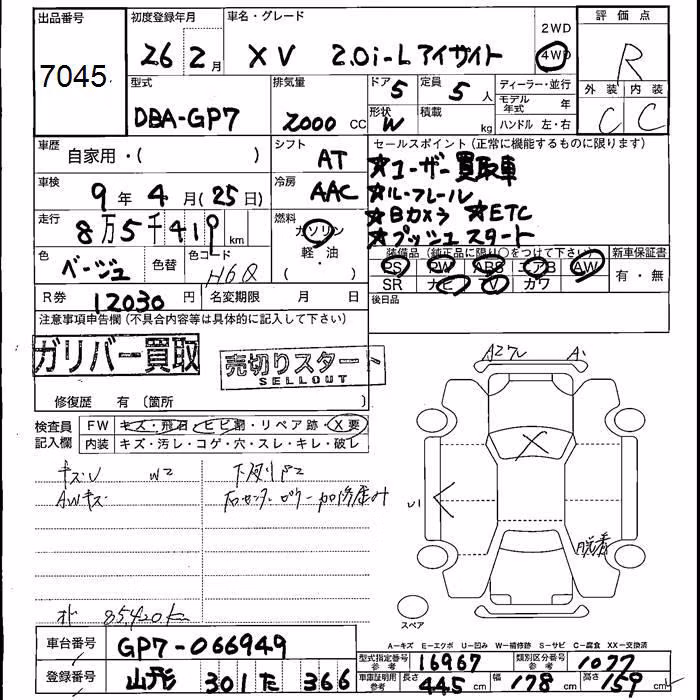 出品番号
7045
初度登録年月
26 2月
車名・グレード
XV 2.0i-L アイサイト
2WD
4WD
評価点
R
外装 内装
C C
型式
DBA-GP7
排気量
2000 cc
ドア 5
形状 W
定員 5人
積載 kg
ディーラー・並行
モデル年式 年
ハンドル 左・右
車歴
自家用・( )
シフト
AT
セールスポイント(正常に機能するものに限ります)
★ユーザー買取車
★ルーフレール
★Bカメラ ★ETC
★プッシュスタート
車検
9年4月(25日)
冷房
AAC
走行
8万5千419km
燃料
ガソリン
軽・油
( ・ )
色
ベージュ
色替
色コード
H6Q
装備品(純正品に限り○をつけて下さい)
PS PW ABS エアB AW
SR ナビ V カワ
新車保証書
有・無
R券 12030円
名変期限 月 日
後日品
注意事項申告欄(不具合内容等は具体的に記入して下さい)
ガリバー買取
売切りスター
SELLOUT
修復歴 有(箇所 )
検査員
記入欄
FW キズ・飛石・ヒビ割・リペア跡・X要
内装 キズ・汚レ・コゲ・穴・スレ・キレ・破レ
キズU W2
AWキズ
オド 85420km
脱着
スペア
A-キズ E-エクボ U-凹み W-補修跡 S-サビ C-腐食 XX-交換済
車台番号
GP7-066949
型式指定番号 参考 16967
類別区分番号 参考 1077
登録番号
山形 301 た 366
車庫証明用 参考 長さ 445cm 幅 178cm 高さ 159cm